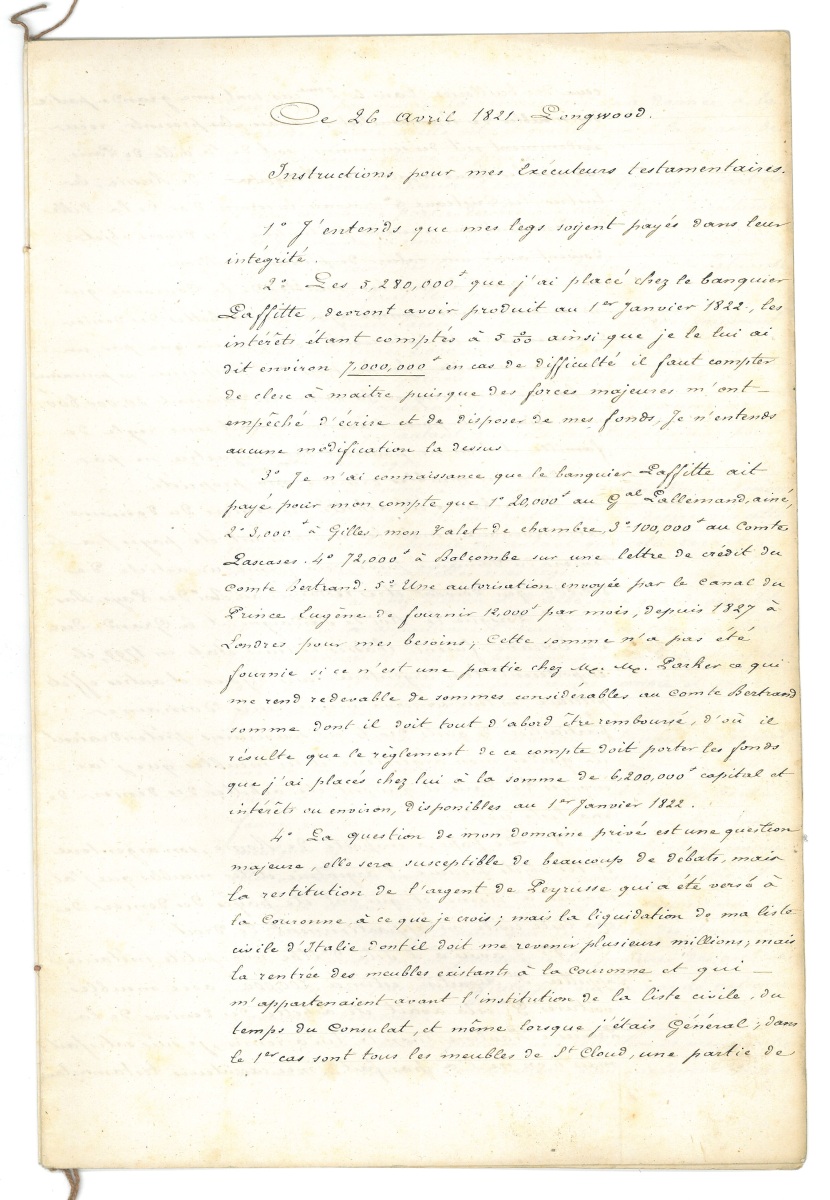 Ce 26 Avril 1821. Longwood.
Instructions pour mes Exécuteurs testamentaires.
1° J'entends que mes legs soyent payés dans leur
intégrité.
2° Les 5,280,000f que j'ai placé chez le banquier
Laffitte, devront avoir produit au 1er Janvier 1822, les
intérêts étant comptés à 5 % ainsi que je le lui ai
dit environ 7,000,000f en cas de difficulté il faut compter
de clerc à maitre puisque des forces majeures m'ont
empêché d'écrire et de disposer de mes fonds, Je n'entends
aucune modification la dessus
3° Je n'ai connaissance que le banquier Laffitte ait
payé pour mon compte que 1° 20,000f au Gal Lallemand, ainé,
2° 3,000f à Gilles, mon Valet de chambre, 3° 100,000f au Comte
Lascases. 4° 72,000f à Balcombe sur une lettre de crédit du
Comte Bertrand. 5° Une autorisation envoyée par le Canal du
Prince Eugène de fournir 12,000f par mois, depuis 1827 à
Londres pour mes besoins; Cette somme n'a pas été
fournie si ce n'est une partie chez Mr. Mr. Parker ce qui
me rend redevable de sommes considérables au Comte Bertrand
somme dont il doit tout d'abord être remboursé, d'où il
résulte que le règlement de ce compte doit porter les fonds
que j'ai placés chez lui à la somme de 6,200,000f capital et
intérêts ou environ, disponibles au 1er Janvier 1822.
4° La question de mon domaine privé est une question
majeure, elle sera susceptible de beaucoup de débats, mais
la restitution de l'argent de Peyrusse qui a été versé à
la Couronne, à ce que je crois; mais la liquidation de ma liste
civile d'Italie dont il doit me revenir plusieurs millions; mais
la rentrée des meubles existants à la Couronne et qui
m'appartenaient avant l'institution de la liste civile, du
temps du Consulat, et même lorsque j'étais Général; dans
le 1er cas sont tous les meubles de St Cloud, une partie de